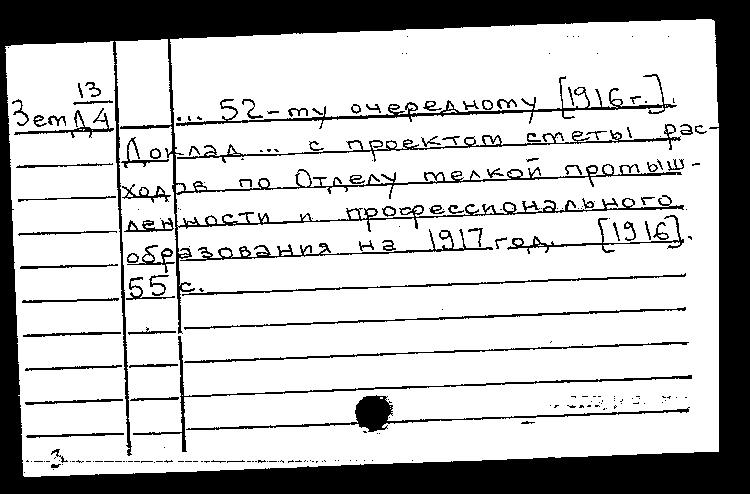 13
Зем Д4
... 52-му очередному [1916 г.].
Доклад ... с проектом сметы рас-
ходов по Отделу мелкой промыш-
ленности и профессионального
образования на 1917 год. [1916].
55 с.
3